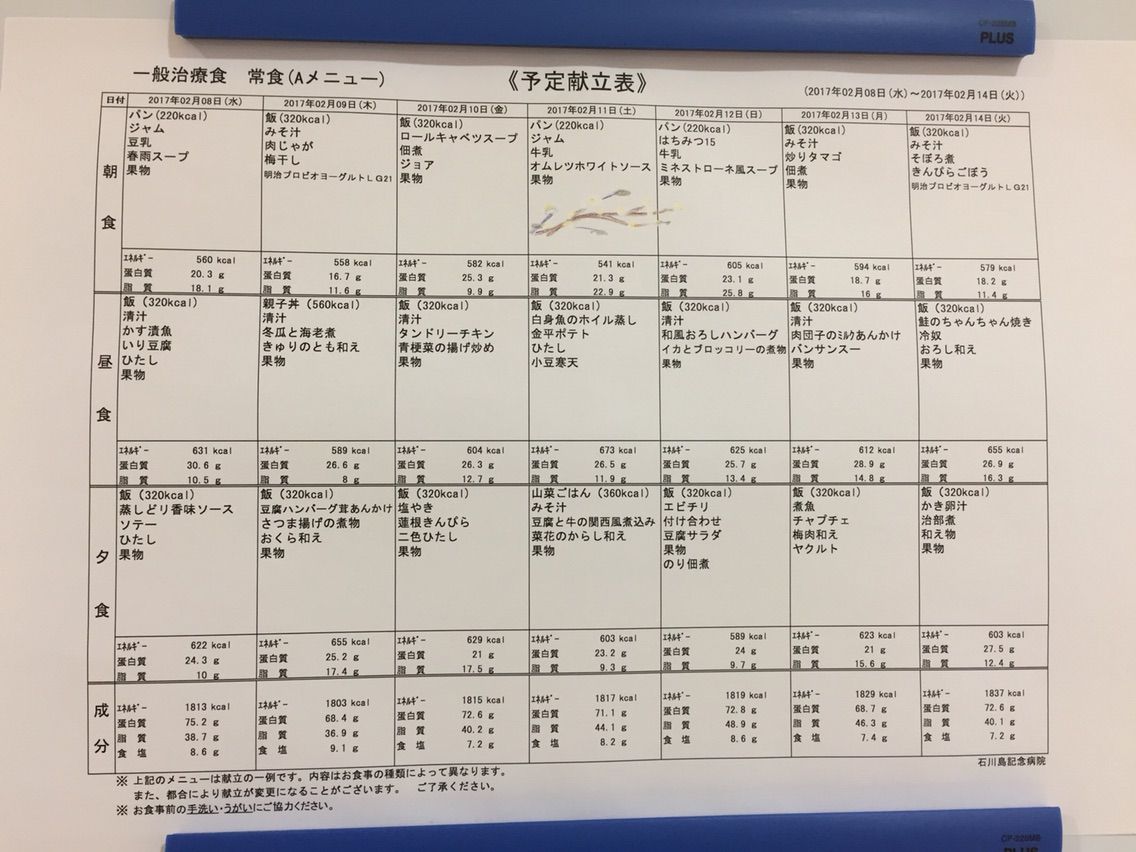 CP-028MB
PLUS
一般治療食 常食(Aメニュー)
《予定献立表》
(2017年02月08日(水)～2017年02月14日(火))
日付 2017年02月08日(水) 2017年02月09日(木) 2017年02月10日(金) 2017年02月11日(土) 2017年02月12日(日) 2017年02月13日(月) 2017年02月14日(火)
朝食
パン(220kcal)
ジャム
豆乳
春雨スープ
果物
ｴﾈﾙｷﾞｰ 560 kcal
蛋白質 20.3 g
脂 質 18.1 g
飯(320kcal)
みそ汁
肉じゃが
梅干し
明治プロビオヨーグルトＬＧ21
ｴﾈﾙｷﾞｰ 558 kcal
蛋白質 16.7 g
脂 質 11.6 g
飯(320kcal)
ロールキャベツスープ
佃煮
ジョア
果物
ｴﾈﾙｷﾞｰ 582 kcal
蛋白質 25.3 g
脂 質 9.9 g
パン(220kcal)
ジャム
牛乳
オムレツホワイトソース
果物
ｴﾈﾙｷﾞｰ 541 kcal
蛋白質 21.3 g
脂 質 22.9 g
パン(220kcal)
はちみつ15
牛乳
ミネストローネ風スープ
果物
ｴﾈﾙｷﾞｰ 605 kcal
蛋白質 23.1 g
脂 質 25.8 g
飯(320kcal)
みそ汁
炒りタマゴ
佃煮
果物
ｴﾈﾙｷﾞｰ 594 kcal
蛋白質 18.7 g
脂 質 16 g
飯(320kcal)
みそ汁
そぼろ煮
きんぴらごぼう
明治プロビオヨーグルトＬＧ21
ｴﾈﾙｷﾞｰ 579 kcal
蛋白質 18.2 g
脂 質 11.4 g
昼食
飯(320kcal)
清汁
かす漬魚
いり豆腐
ひたし
果物
ｴﾈﾙｷﾞｰ 631 kcal
蛋白質 30.6 g
脂 質 10.5 g
親子丼(560kcal)
清汁
冬瓜と海老煮
きゅりのとも和え
果物
ｴﾈﾙｷﾞｰ 589 kcal
蛋白質 26.6 g
脂 質 8 g
飯(320kcal)
清汁
タンドリーチキン
青梗菜の揚げ炒め
果物
ｴﾈﾙｷﾞｰ 604 kcal
蛋白質 26.3 g
脂 質 12.7 g
飯(320kcal)
白身魚のホイル蒸し
金平ポテト
ひたし
小豆寒天
ｴﾈﾙｷﾞｰ 673 kcal
蛋白質 26.5 g
脂 質 11.9 g
飯(320kcal)
清汁
和風おろしハンバーグ
イカとブロッコリーの煮物
果物
ｴﾈﾙｷﾞｰ 625 kcal
蛋白質 25.7 g
脂 質 13.4 g
飯(320kcal)
清汁
肉団子のﾐﾙｸあんかけ
バンサンスー
果物
ｴﾈﾙｷﾞｰ 612 kcal
蛋白質 28.9 g
脂 質 14.8 g
飯(320kcal)
鮭のちゃんちゃん焼き
冷奴
おろし和え
果物
ｴﾈﾙｷﾞｰ 655 kcal
蛋白質 26.9 g
脂 質 16.3 g
夕食
飯(320kcal)
蒸しどり香味ソース
ソテー
ひたし
果物
ｴﾈﾙｷﾞｰ 622 kcal
蛋白質 24.3 g
脂 質 10 g
飯(320kcal)
豆腐ハンバーグ茸あんかけ
さつま揚げの煮物
おくら和え
果物
ｴﾈﾙｷﾞｰ 655 kcal
蛋白質 25.2 g
脂 質 17.4 g
飯(320kcal)
塩やき
蓮根きんぴら
二色ひたし
果物
ｴﾈﾙｷﾞｰ 629 kcal
蛋白質 21 g
脂 質 17.5 g
山菜ごはん(360kcal)
みそ汁
豆腐と牛の関西風煮込み
菜花のからし和え
果物
ｴﾈﾙｷﾞｰ 603 kcal
蛋白質 23.2 g
脂 質 9.3 g
飯(320kcal)
エビチリ
付け合わせ
豆腐サラダ
果物
のり佃煮
ｴﾈﾙｷﾞｰ 589 kcal
蛋白質 24 g
脂 質 9.7 g
飯(320kcal)
煮魚
チャプチェ
梅肉和え
ヤクルト
ｴﾈﾙｷﾞｰ 623 kcal
蛋白質 21 g
脂 質 15.6 g
飯(320kcal)
かき卵汁
治部煮
和え物
果物
ｴﾈﾙｷﾞｰ 603 kcal
蛋白質 27.5 g
脂 質 12.4 g
成分
ｴﾈﾙｷﾞｰ 1813 kcal
蛋白質 75.2 g
脂 質 38.7 g
食 塩 8.6 g
ｴﾈﾙｷﾞｰ 1803 kcal
蛋白質 68.4 g
脂 質 36.9 g
食 塩 9.1 g
ｴﾈﾙｷﾞｰ 1815 kcal
蛋白質 72.6 g
脂 質 40.2 g
食 塩 7.2 g
ｴﾈﾙｷﾞｰ 1817 kcal
蛋白質 71.1 g
脂 質 44.1 g
食 塩 8.2 g
ｴﾈﾙｷﾞｰ 1819 kcal
蛋白質 72.8 g
脂 質 48.9 g
食 塩 8.6 g
ｴﾈﾙｷﾞｰ 1829 kcal
蛋白質 68.7 g
脂 質 46.3 g
食 塩 7.4 g
ｴﾈﾙｷﾞｰ 1837 kcal
蛋白質 72.6 g
脂 質 40.1 g
食 塩 7.2 g
石川島記念病院
※ 上記のメニューは献立の一例です。内容はお食事の種類によって異なります。
また、都合により献立が変更になることがございます。 ご了承ください。
※ お食事前の手洗い・うがいにご協力ください。
CP-028MB
PLUS